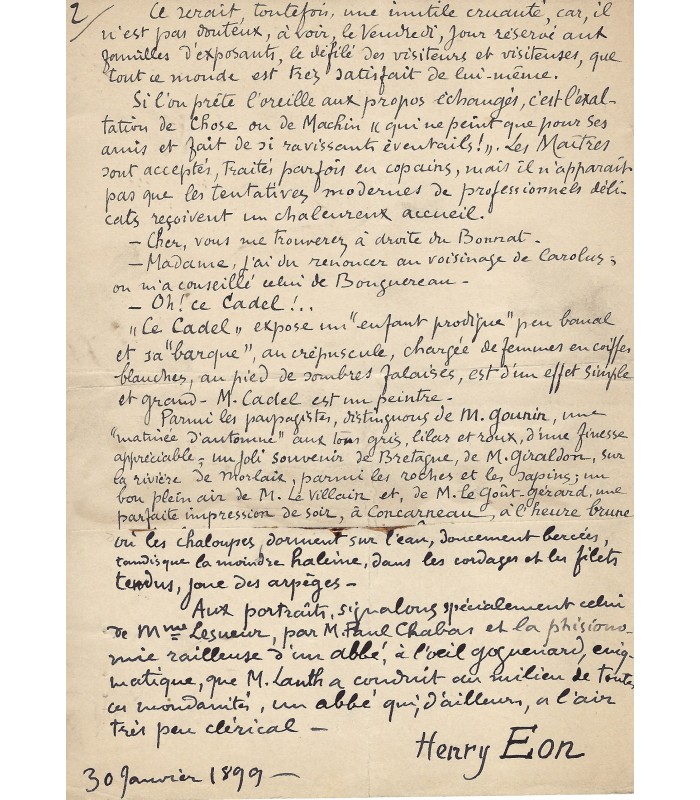 2/ Ce serait, toutefois, une inutile cruauté, car, il
n'est pas douteux, à voir, le Vendredi, jour réservé aux
familles d'exposants, le défilé des visiteurs et visiteuses, que
tout ce monde est très satisfait de lui-même.
Si l'on prête l'oreille aux propos échangés, c'est l'exal-
tation de Chose ou de Machin "qui ne peint que pour ses
amis et fait de si ravissants éventails!". Les Maîtres
sont acceptés, traités parfois en copains, mais il n'apparaît
pas que les tentatives modernes de professionnels déli-
cats reçoivent un chaleureux accueil.
— Cher, vous me trouverez à droite du Bonnat —
— Madame, j'ai du renoncer au voisinage de Carolus;
on m'a conseillé celui de Bouguereau —
— Oh! ce Cadel!..
"Ce Cadel" expose un "enfant prodigue" peu banal
et sa "barque", au crépuscule, chargée de femmes en coiffes
blanches, au pied de sombres falaises, est d'un effet simple
et grand — M. Cadel est un peintre —
Parmi les paysagistes, distinguons de M. Gounin, une
"matinée d'automne" aux tons gris, lilas et roux, d'une finesse
appréciable; un joli souvenir de Bretagne, de M. Giraldon, sur
la rivière de Morlaix, parmi les roches et les sapins; un
bon plein air de M. Le Villain et, de M. le Goût-Gérard, une
parfaite impression de soir, à Concarneau, à l'heure brune
où les chaloupes dorment sur l'eau, doucement bercées,
tandis que la moindre haleine, dans les cordages et les filets
tendus, joue des arpèges —
Aux portraits, signalons spécialement celui
de Mme Lesueur, par M. Paul Chabas et la phisiono-
mie railleuse d'un abbé, à l'oeil goguenard, énig-
matique, que M. Lauth a conduit au milieu de toutes
ces mondanités, un abbé qui, d'ailleurs, a l'air
très peu clérical —
Henry Eon
30 Janvier 1899 —